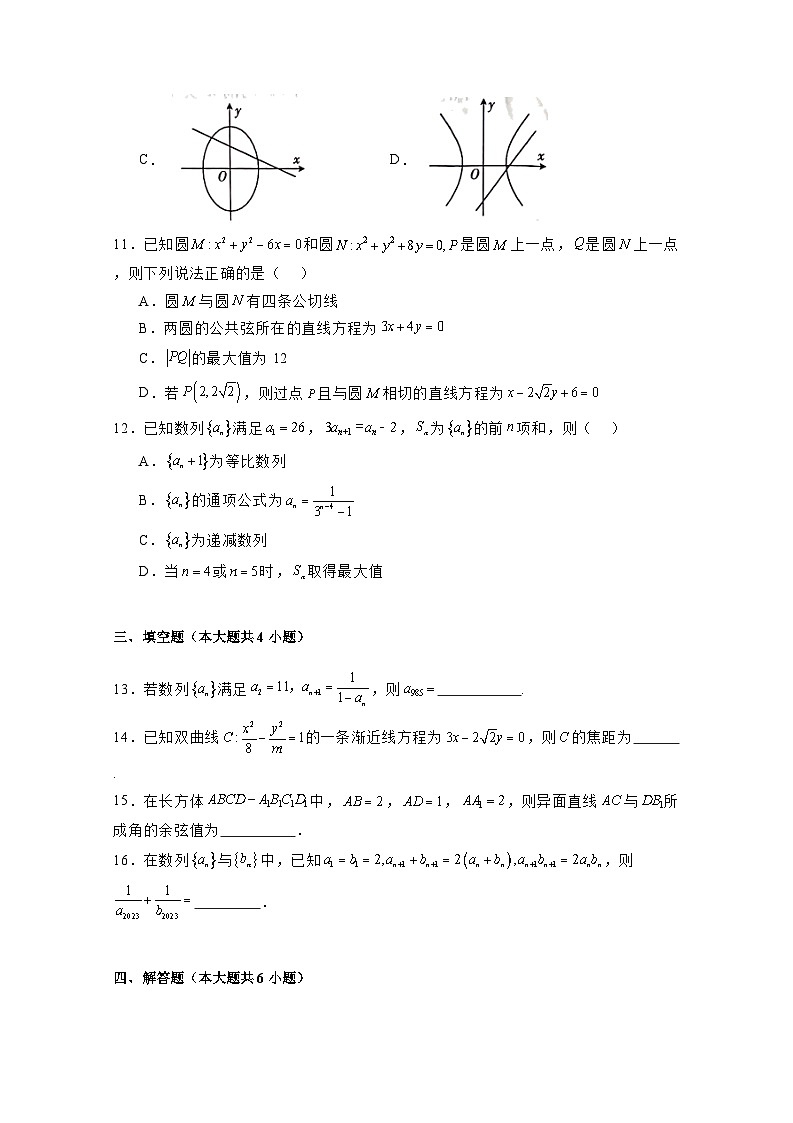 y
x
O
C.
y
x
O
D.
11.已知圆M : x² + y² − 6x = 0和圆N : x² + y² + 8y = 0, P是圆M上一点，Q是圆N上一点
，则下列说法正确的是（ ）
A.圆M与圆N有四条公切线
B.两圆的公共弦所在的直线方程为3x + 4y = 0
C.|PQ|的最大值为 12
D.若P(2, 2√2)，则过点P且与圆M相切的直线方程为x − 2√2y + 6 = 0
12.已知数列{aₙ}满足a₁ = 26，3aₙ₊₁ = aₙ − 2，Sₙ为{aₙ}的前n项和，则（ ）
A.{aₙ + 1}为等比数列
B.{aₙ}的通项公式为aₙ = 1/(3ⁿ⁻⁴ − 1)
C.{aₙ}为递减数列
D.当n = 4或n = 5时，Sₙ取得最大值
三、填空题（本大题共4 小题）
13.若数列{aₙ}满足a₂ = 11, aₙ₊₁ = 1/(1 − aₙ)，则a₉₈₅ = ___________.
14.已知双曲线C : x²/8 − y²/m = 1的一条渐近线方程为3x − 2√2y = 0，则C的焦距为______
.
15.在长方体ABCD − A₁B₁C₁D₁中，AB = 2，AD = 1，AA₁ = 2，则异面直线AC与DB₁所
成角的余弦值为__________.
16.在数列{aₙ}与{bₙ}中，已知a₁ = b₁ = 2, aₙ₊₁ + bₙ₊₁ = 2(aₙ + bₙ), aₙ₊₁bₙ₊₁ = 2aₙbₙ，则
1/a₂₀₂₃ + 1/b₂₀₂₃ = _________.
四、解答题（本大题共6 小题）